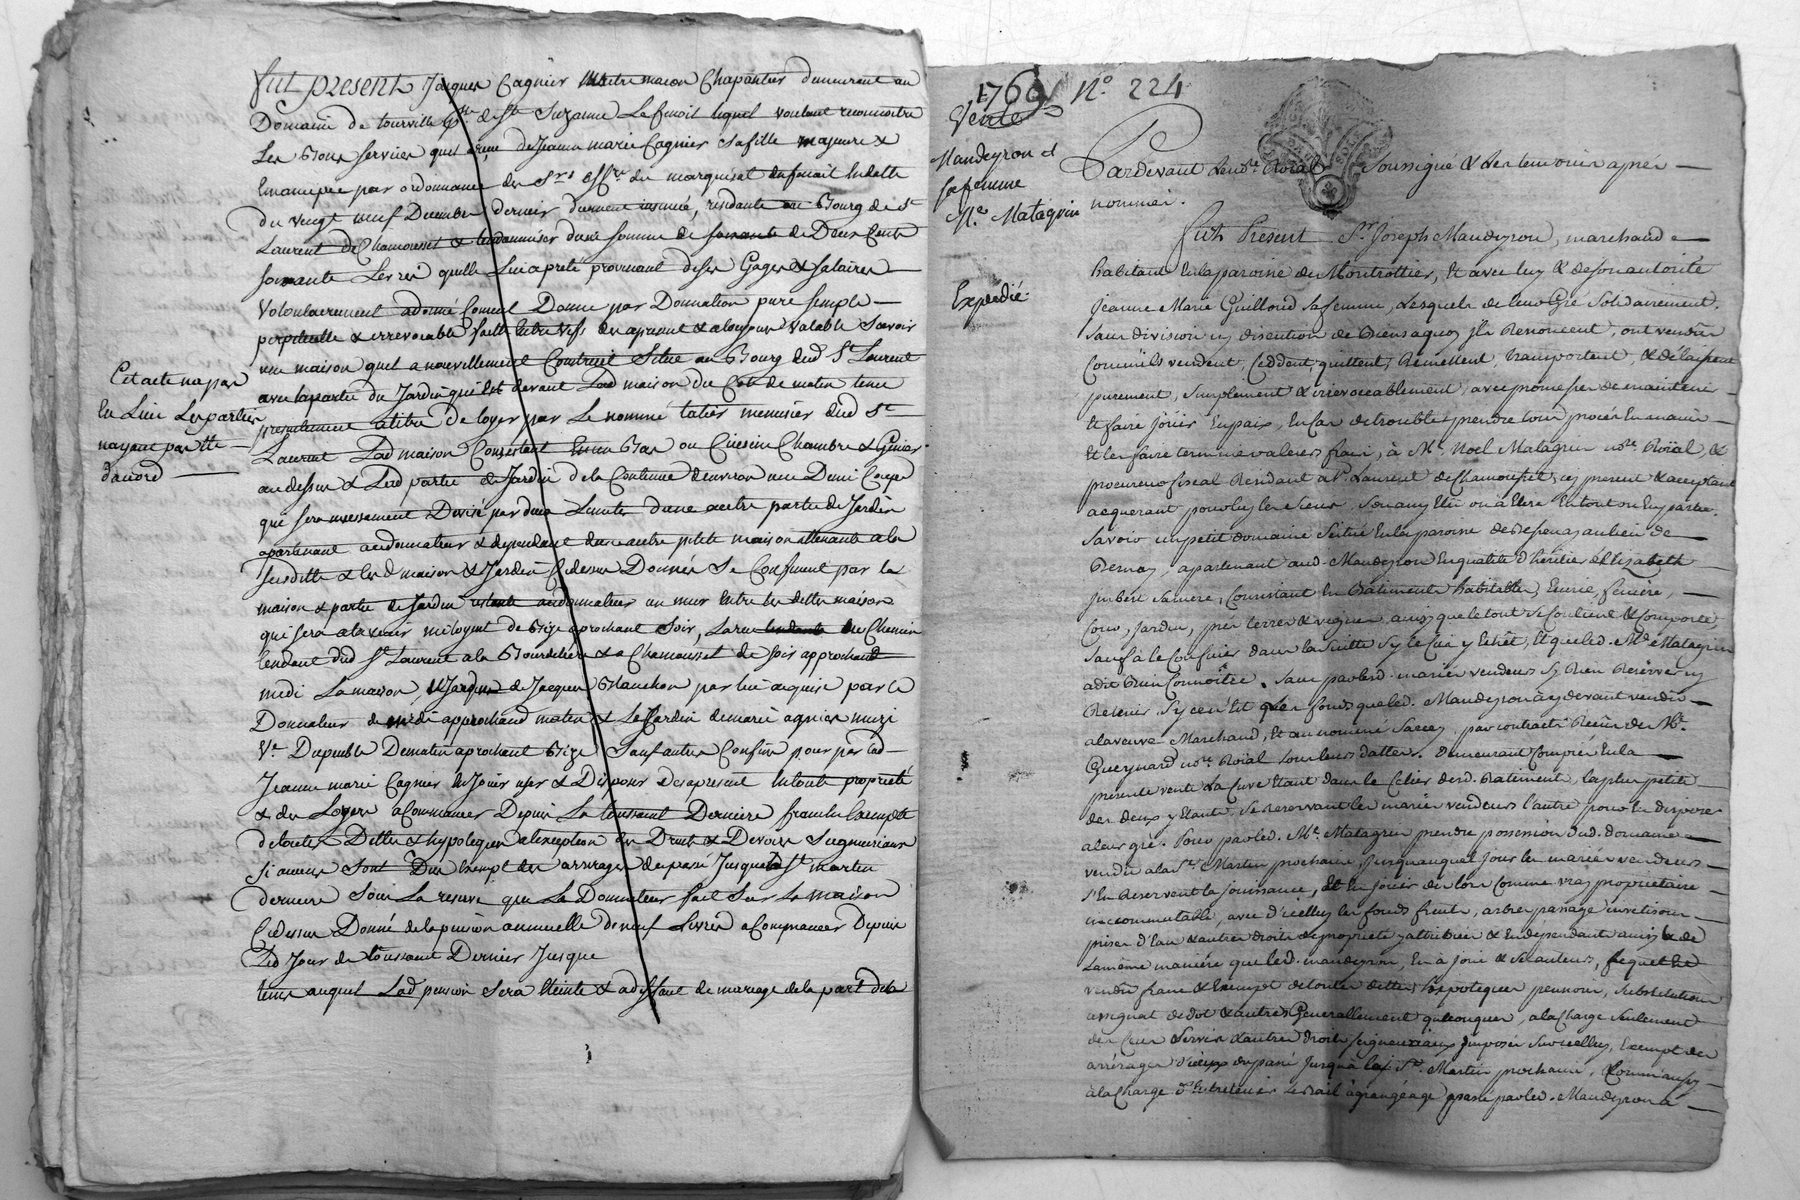 fut present Jacques Cagnier Maitre macon Chapantier demeurant au
Domaine de tourville de Ste Suzanne Lequel voulant reconnoitre
Les Bons services quil a recu de Jeanne marie Cagnier sa fille majeure &
Emancipée par ordonnance des Srs off.rs du marquisat
du vingt neuf Decembre dernier duement insinué, residante au Bourg de St
Laurent de Chamousset & de la somme de soixante de Deux Cents
soixante Livres quelle Lui a preté, provenant de ses Gages & salaires
Volontairement a donné Comme il Donne par Donnation pure simple
perpetuelle & irrevocable faitte Entre vifs des apresent & a toujour valable Scavoir
une maison quil a nouvellement Contruit Situé au Bourg dud St Laurent
avec la partie du Jardin qui Est devant Lad maison du Coté de matin tenu
presentement a titre de loyer par Le nommé menusier dud St
Laurent Lad maison Consistant En un Bas ou Cuisine Chambre & Grenier
au dessus & Lad partie de Jardin de la Contenue denviron une Demi Coupé
qui sera incessamment Divisé par des Limites dune autre partie de Jardin
apartenant au donnateur & dependant dune autre petite maison attenante a la
susditte & les d maison & Jardin Cidessus Donnés Se Confinent par la
maison & partie de Jardin restante au donnateur un mur Entre les dittes maisons
qui sera a lavenir mitoyent de Bize aprochant Soir, La rue tendante ou Chemin
tendant dud St Laurent a la & a Chamousset de soir approchant
midi La maison & Jardin de Jacques Blanchon par lui acquise par le
Donnateur de midi approchand matin & Le Jardin de marie
Ve Dupeuble De matin aprochant Bize Sauf autres Confins pour par lad
Jeanne marie Cagnier En Jouir user & Disposer des apresent En toute proprieté
& des Loyers a Commancer Depuis La toussaint Derniere franche Exempte
de toutes Dettes & hypoteques a lexception des Droits & Devoirs Seigneuriaux
si aucuns Sont Dus Exempt des arrerages du passé Jusqua la St martin
derniere Sous La reserve que Le Donnateur fait Sur La maison
Cidessus Donné de la pension annuelle de neuf Livres a Commancer Depuis
Led Jour de toussaint Dernier Jusque
tems auquel Lad pension Sera Eteinte & a deffaut de mariage de la part de la
Cet acte na pas
En Lieu Les parties
nayant pas Eté
daccord
1769 No. 224
Vente
Maudeyron et
sa femme
Me. Matagrin
Expedié
Pardevant Le no.re Roial Soussigné & les temoins après
nommés.
fut Present Sr. Joseph Maudeyron, marchand
habitant En la paroisse de Montrottier, Et avec luy & de son autorité
Jeanne Marie Guilloud sa femme, Lesquels de leur Gré Solidairement
Sans division ny discution de Biens a quoy ils Renoncent, ont vendu
Comme ils vendent, Ceddent, quittent, Remettent, transportent, & délaissent
purement, simplement & irrévocablement, avec promesse de maintenir
& faire jouir En paix, En Cas de trouble, prendre tous procés En main
Et les faire terminer a leurs frais, à Me. Noel Matagrin no.re Roïal, &
procureur fiscal Residant a St. Laurent de Chamousset, cy present & acceptant
acquerant pour luy les siens, Son amy Elü ou à Elire En tout ou En partie.
Savoir un petit domaine Scitué En la paroisse de au lieu de
apartenant aud. Maudeyron En qualité d'héritié d'Elizabeth
Jmbert sa mere, Consistant En Bâtiments habitables, Ecurie, feniere,
Cour, Jardin, prés terres & vignes, ainsi que le tout Se Contient & Comporte
Sauf à le Confiner dans la Suitte Sy le Cas y Echêt, Et que led. Me. Matagrin
a dit Bien Connoître. Sans par lesd. mariés vendeurs Sy Rien Reserver ny
Retenir, Sy ce n'est les fonds que led. Maudeyron a cy devant vendu
a la veuve Marchand, Et au nommé Sarcey, par contracts Reçus de Me.
Gueynard no.re Roïal sous leurs dattes. Demeurant Compris En la
presente vente La Cuve Etant dans le Celier dud. Batiment, la plus petite
des deux y Etants, Se Reservant les mariés vendeurs l'autre pour En disposer
a leur gré. Pour par led. Me. Matagrin prendre possession dud. domaine
vendu a la St. Martin prochaine, jusqu'auquel jour les mariés vendeurs
s'En Reservent la Jouissance, Et En jouir dès lors Comme vray proprietaire
incommutable, avec d'icelluy les fonds fruits, arbres passage
prises d'Eau & autres droits de proprieté y attribués & En dependants ainsi & de
La même maniére que led. maudeyron, En a Joui & Ses auteurs,
vendu franc & Exempt de toutes dettes, hypoteques pensions, Substitution
assignat de dot & autres Generallement quelconques, a la Charge Seulement
des Cens Servis & autres droits Seigneuriaux Jmposés Sur icelluy, Exempt des
arrérages d'iceux du passé Jusqu'à la St. Martin prochaine, Comme aussy
à la Charge d'Entretenir Le Bail à grangéage passé par led. Maudeyron a